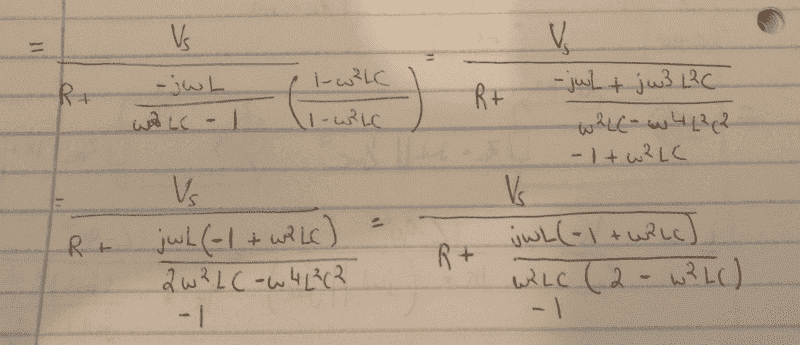 = Vs / (R + (-jωL / (ω²LC - 1)) ((1-ω²LC) / (1-ω²LC))) = Vs / (R + (-jωL + jω³L²C) / (ω²LC - ω⁴L²C² - 1 + ω²LC))
= Vs / (R + jωL(-1 + ω²LC) / (2ω²LC - ω⁴L²C² - 1)) = Vs / (R + jωL(-1 + ω²LC) / (ω²LC(2 - ω²LC) - 1))